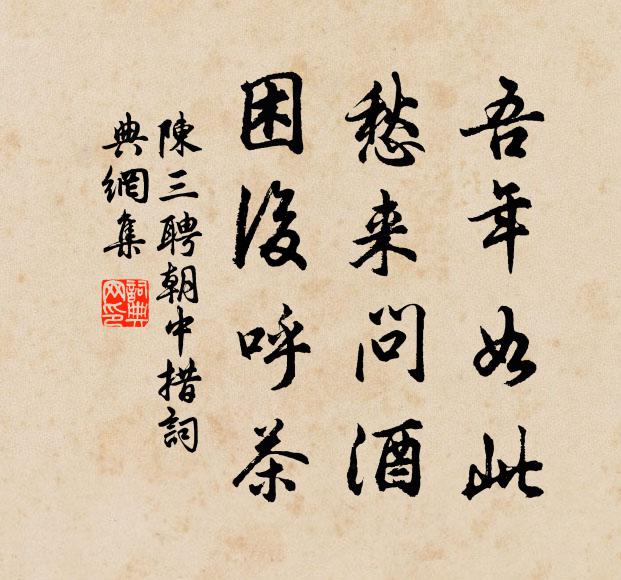 吾年如此
愁来问酒
困後呼茶
陳三聘朝中措詞
典網集
詞典网印